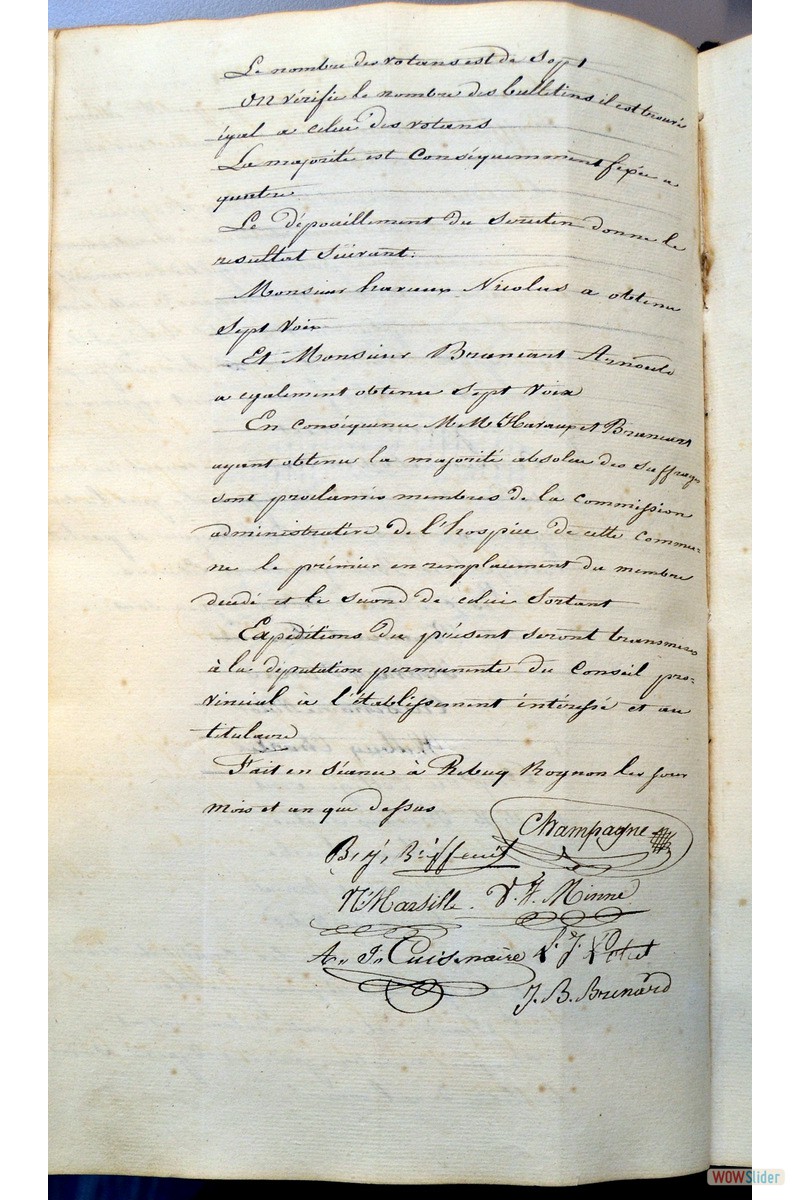 Le nombre des votans est de Sept
On vérifie le nombre des bulletins il est trouvé
égal a celui des votans
La majorité est conséquemment fixée a
quatre
Le dépouillement du scrutin donne le
resultat suivant:
Monsieur haraux Nicolas a obtenu
Sept Voix
Et Monsieur Brancart Arnould
a egalement obtenu Sept Voix
En conséquence M M Haraux et Brancart
ayant obtenu la majorité absolue des suffrages
sont proclamés membres de la commission
administrative de l'hospice de cette commu=
ne le prémier en remplacement du membre
decedé et le second de celui Sortant
Expéditions du présent seront transmises
à la députation permanente du Conseil pro=
vincial à l'établissement intéressé et au
titulaire
Fait en Séance à Rebecq Rognon les jour
mois et an que dessus
Champagne
B. J.
N Marsille. V. J. Minne
A. J. Cuisenaire
J. B. Brenard
WOWSlider